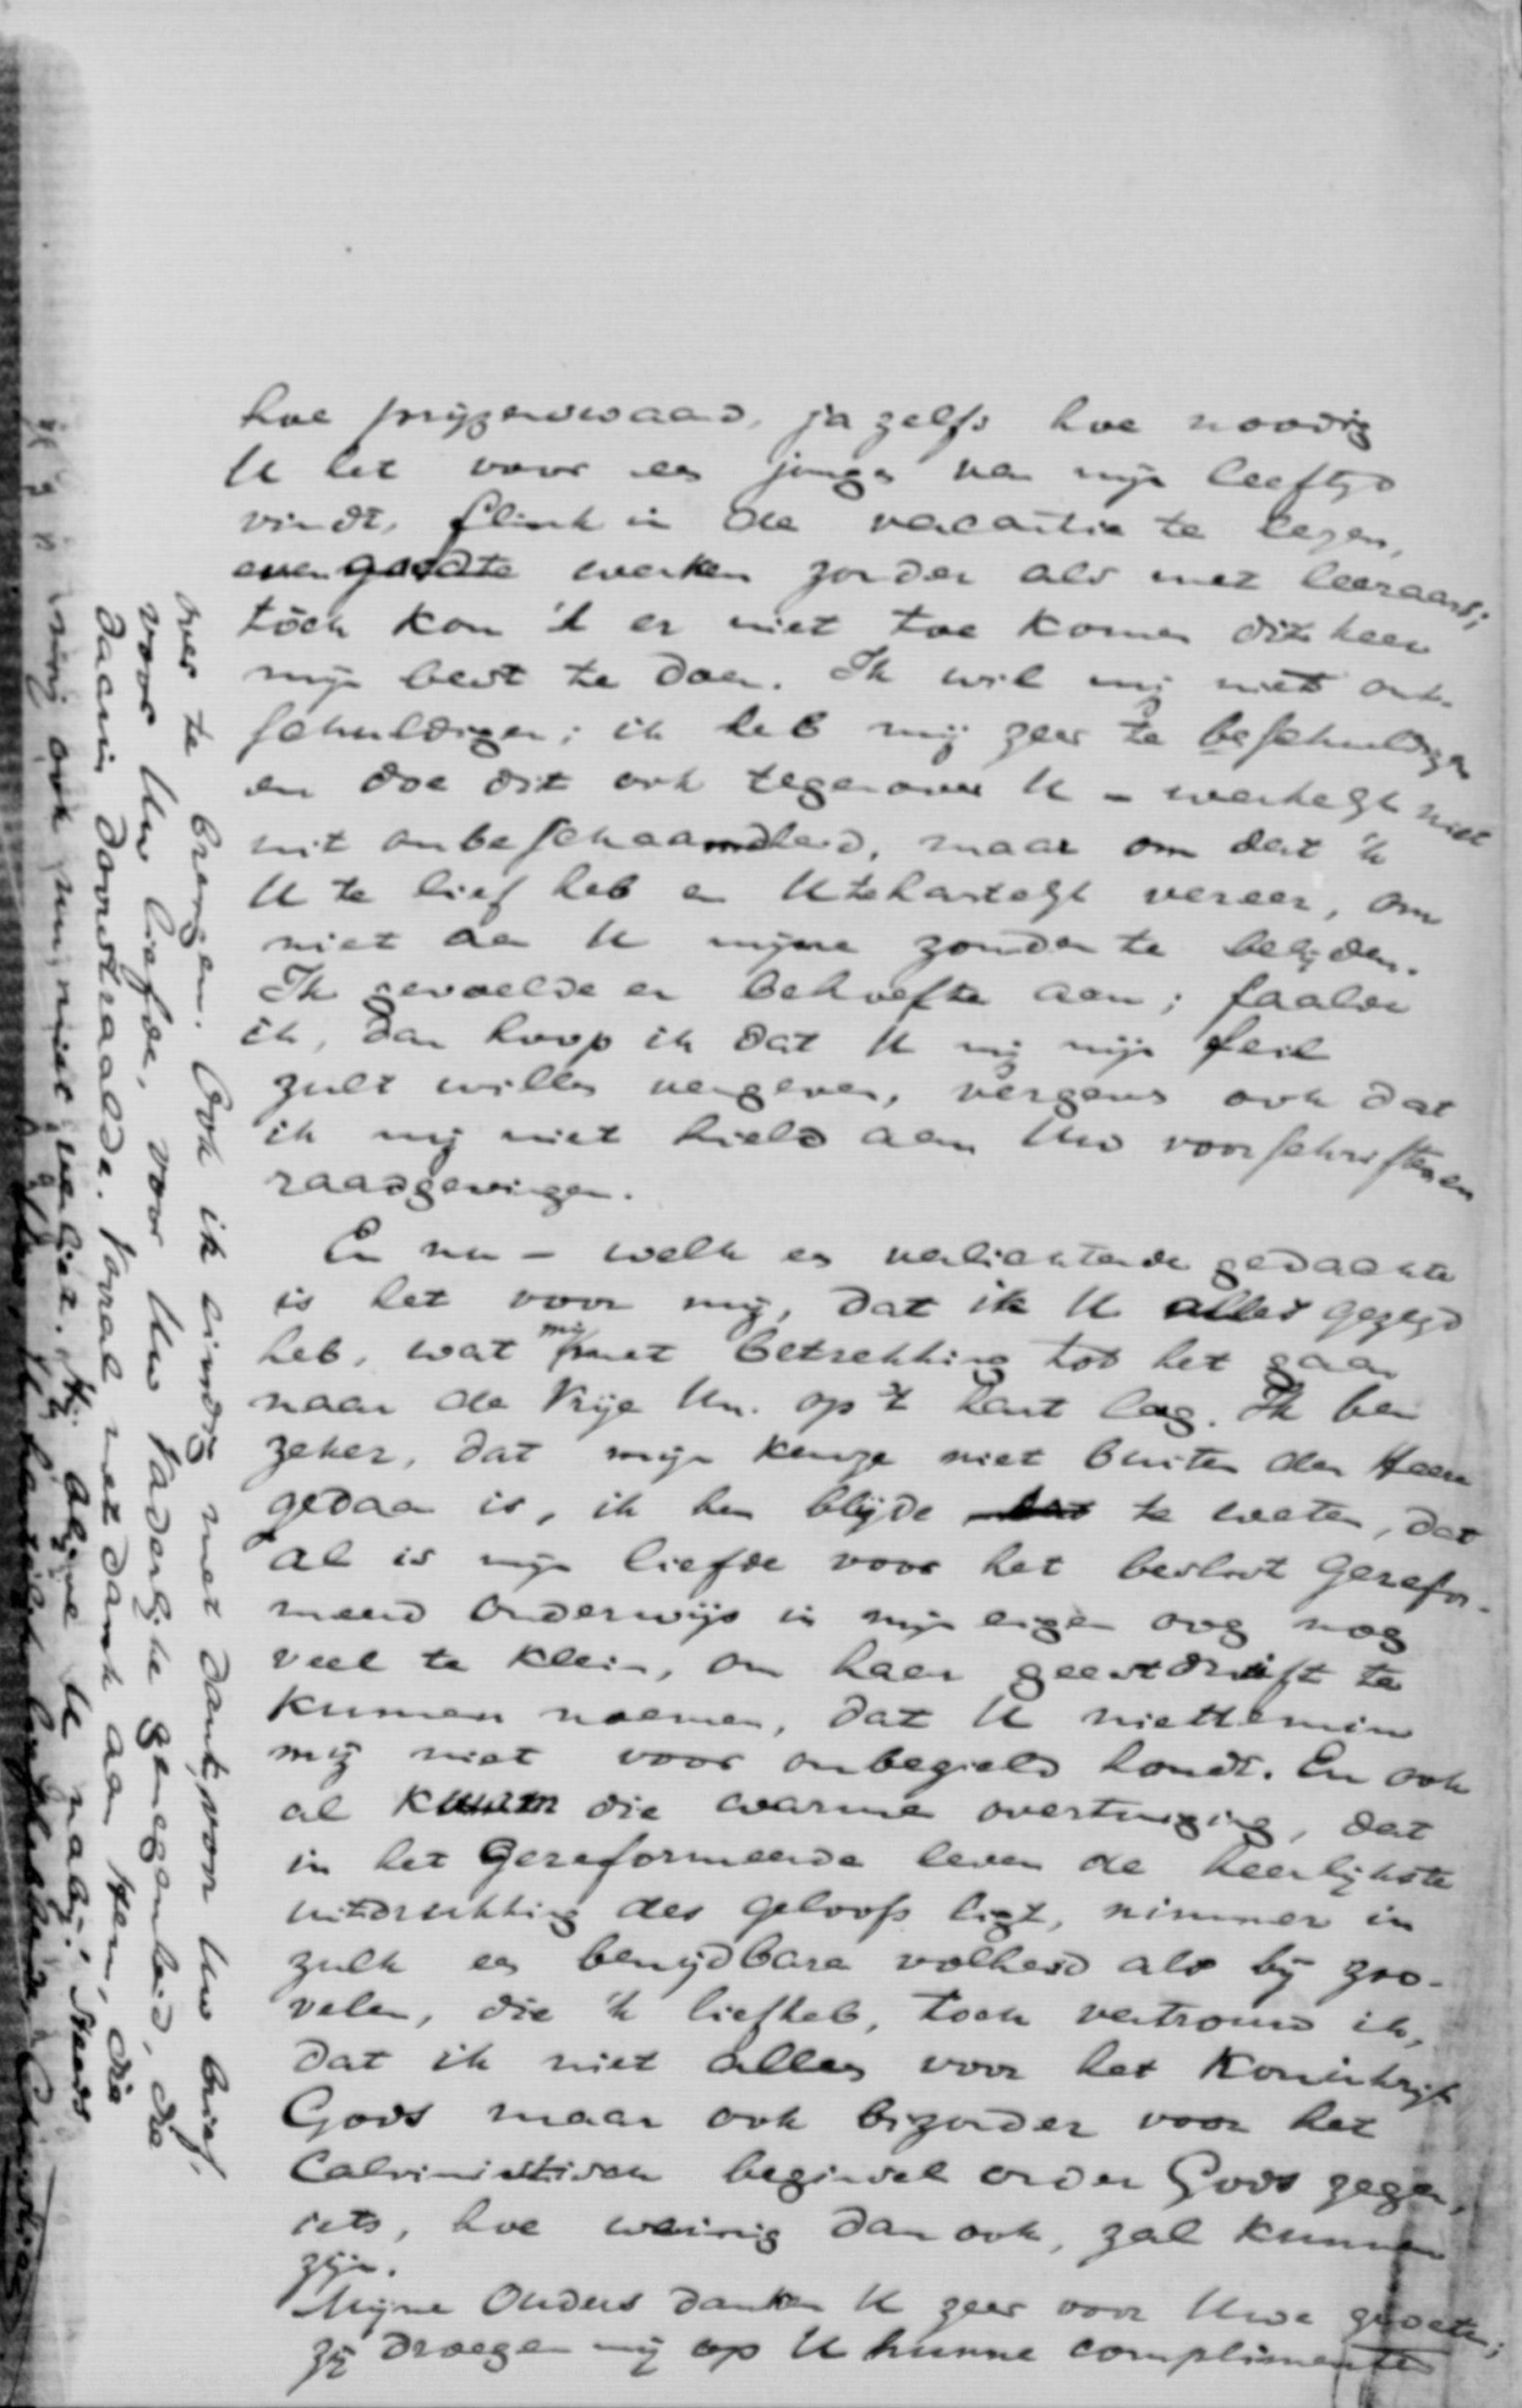 hoe prijzenswaard, ja zelfs hoe noodig
U het voor een jongen van mijn leeftijd
vindt, flink in de vacantie te lezen,
even goed te werken zonder als met leeraars;
tòch kon 'k er niet toe komen ditkeer
mijn best te doen. Ik wil mij niet ont-
schuldigen; ik heb mij zeer te beschuldigen
en doe dit ook tegenover U – werkelijk niet
uit onbeschaamdheid, maar om dat 'k
U te lief heb en U te hartelijk vereer, om
niet aan U mijne zonden te belijden.
Ik gevoelde er behoefte aan; faalde
ik, dan hoop ik dat U mij mijn feil
zult willen vergeven, vergeeft ook dat
ik mij niet hield aan Uw voorschriften en
raadgevingen.
En nu – welk een verlichtende gedachte
is het voor mij, dat ik U alles gezegd
heb, wat mij met betrekking tot het gaan
naar de Vrije Un. op 't hart lag. Ik ben
zeker, dat mijn keuze niet buiten den Heere
gedaan is, ik ben blijde te weten, dat
al is mijn liefde voor het beslist Gerefor-
meerd Onderwijs in mijn eigen oog nog
veel te klein, om haar geestdrift te
kunnen noemen, dat U niettemin
mij niet voor onbezield houdt. En ook
al kwam die warme overtuiging, dat
in het Gereformeerde leven de heerlijkste
uitdrukking des geloofs ligt, nimmer in
zulk een benijdbare volheid als bij zoo-
velen, die 'k liefheb, toch vertrouw ik,
dat ik niet alleen voor het Koninkrijk
Gods maar ook bizonder voor het
Calvinistisch beginsel onder Gods zegen,
iets, hoe weinig dan ook, zal kunnen
zijn.
Mijne Ouders danken U zeer voor Uwe groeten;
zij droegen mij op U hunne complimenten
over te brengen. Ook ik eindig met dank voor Uw brief,
voor Uw liefde, voor Uw vaderlijke genegenheid, die
daarin doorstraalde. Vooral met dank aan Hem, die
mij ook nu niet verliet. Hij blijve U nabij, steeds